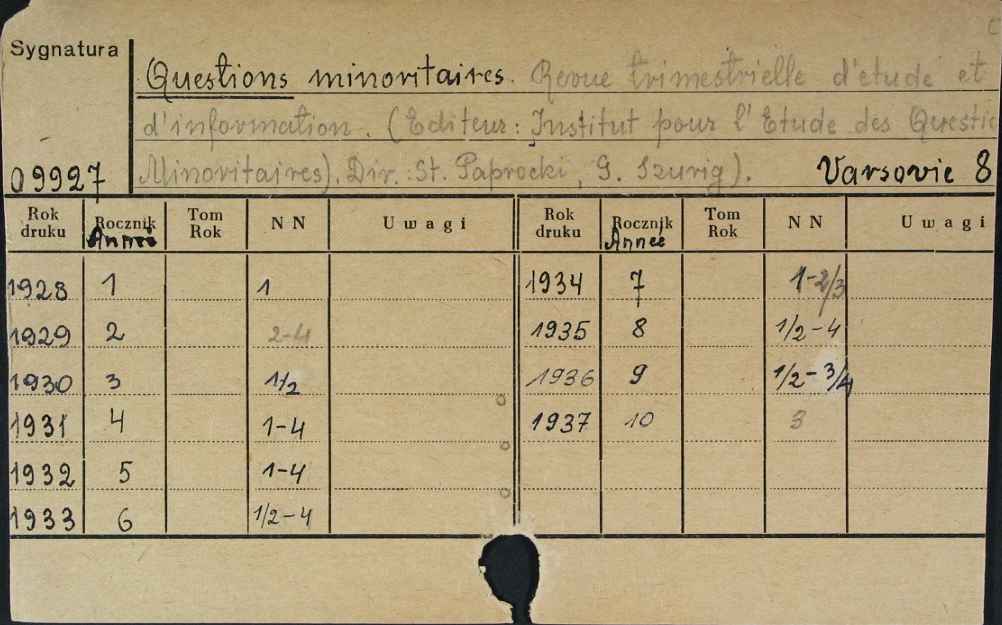 Sygnatura
Questions minoritaires. Revue trimestrielle d'etude et
d'information. (Editeur: Institut pour l'Etude des Questio
09927 Minoritaires). Dir.: St. Paprocki, G. Szurig). Varsovie 8
Rok druku Rocznik Tom Rok NN Uwagi Rok druku Rocznik Tom Rok NN Uwagi
Année Année
1928 1 1 1934 7 1-2/3
1929 2 2-4 1935 8 1/2-4
1930 3 1/2 1936 9 1/2-3/4
1931 4 1-4 1937 10 3
1932 5 1-4
1933 6 1/2-4